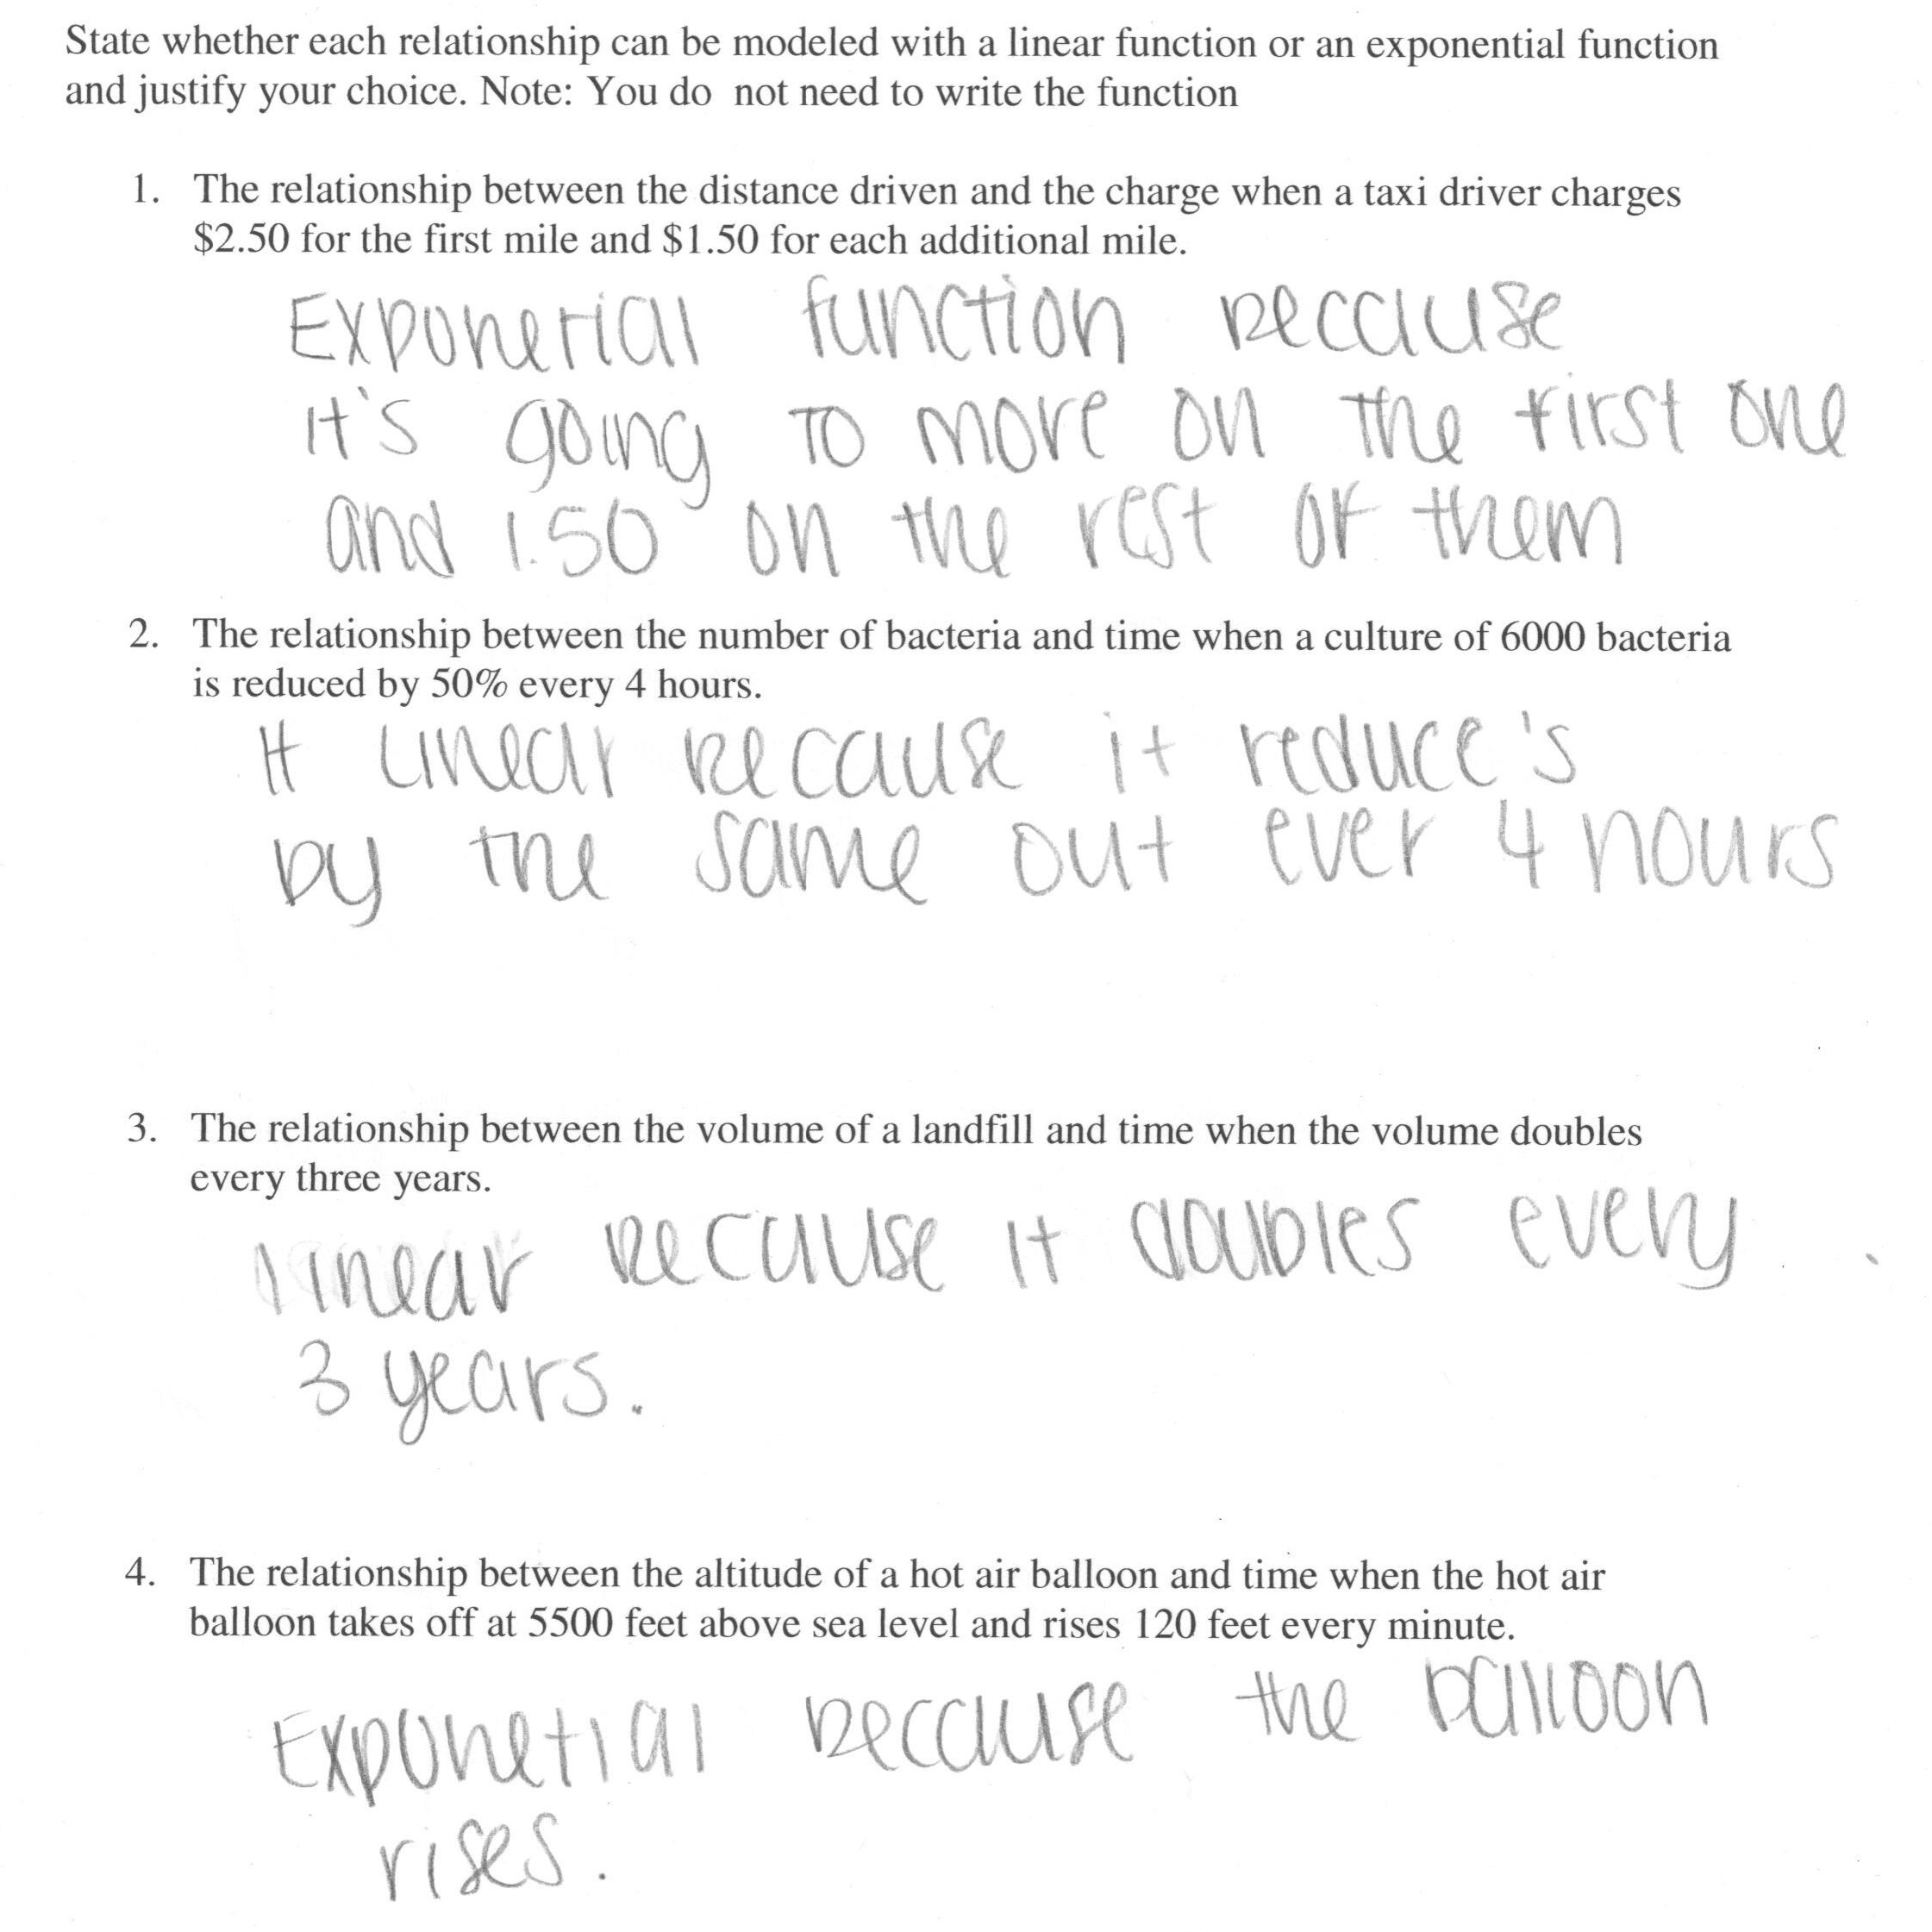 State whether each relationship can be modeled with a linear function or an exponential function
and justify your choice. Note: You do not need to write the function
1. The relationship between the distance driven and the charge when a taxi driver charges
$2.50 for the first mile and $1.50 for each additional mile.
Exponetial function because
it's going to more on the first one
and 1.50 on the rest of them
2. The relationship between the number of bacteria and time when a culture of 6000 bacteria
is reduced by 50% every 4 hours.
It Linear because it reduce's
by the same out ever 4 hours
3. The relationship between the volume of a landfill and time when the volume doubles
every three years.
linear because it doubles every
3 years.
4. The relationship between the altitude of a hot air balloon and time when the hot air
balloon takes off at 5500 feet above sea level and rises 120 feet every minute.
Exponetial because the balloon
rises.